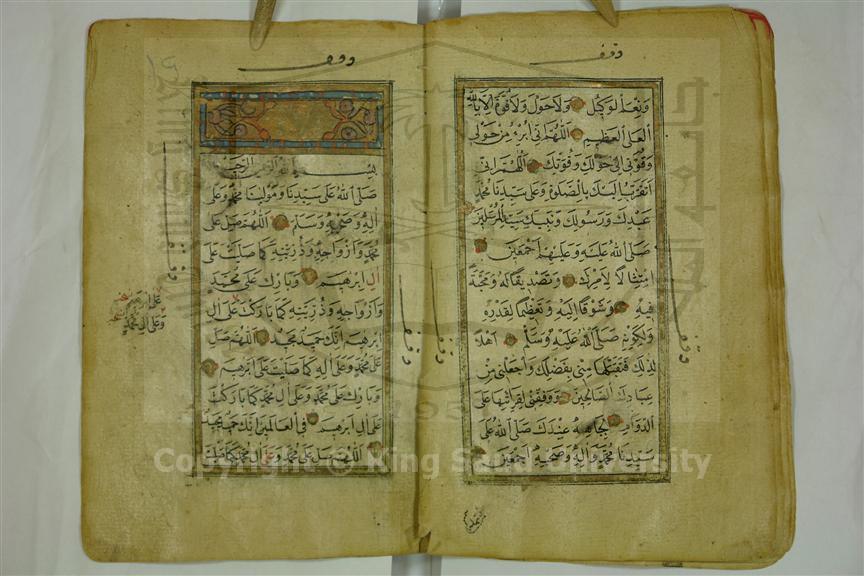 وقف
ونعم الوكيل ولا حول ولا قوة الا بالله
العلي العظيم اللهم اني ابرؤ من حولي
وقوتي الى حولك وقوتك اللهم اني
اتقرب اليك بالصلوة على سيدنا محمد
عبدك ورسولك ونبيك سيد المرسلين
صلى الله عليه وعليهم اجمعين
امتثالا لامرك وتصديقا له ومحبة
فيه وشوقا اليه وتعظيما لقدره
ولكونه صلى الله عليه وسلم اهلا
لذلك فتقبلها مني بفضلك واجعلني من
عبادك الصالحين ووفقني لقراءتها على
الدوام بجاهه عندك صلى الله على
سيدنا محمد وآله وصحبه اجمعين
وقف
وقف
وقف
بسم الله الرحمن الرحيم
صلى الله على سيدنا ومولينا محمد وعلى
اله وصحبه وسلم اللهم صل على
محمد وازواجه وذريته كما صليت على
ال ابرهيم وبارك على محمد
وازواجه وذريته كما باركت على ال
ابرهيم انك حميد مجيد اللهم صل
على محمد وعلى اله كما صليت على ابرهيم
وبارك على محمد وعلى ال محمد كما باركت
على ال ابرهيم في العالمين انك حميد مجيد
اللهم صل على محمد وعلى ال محمد كما صليت
وقف
وقف
على ابرهيم
وعلى ال محمد
Copyright © King Saud University